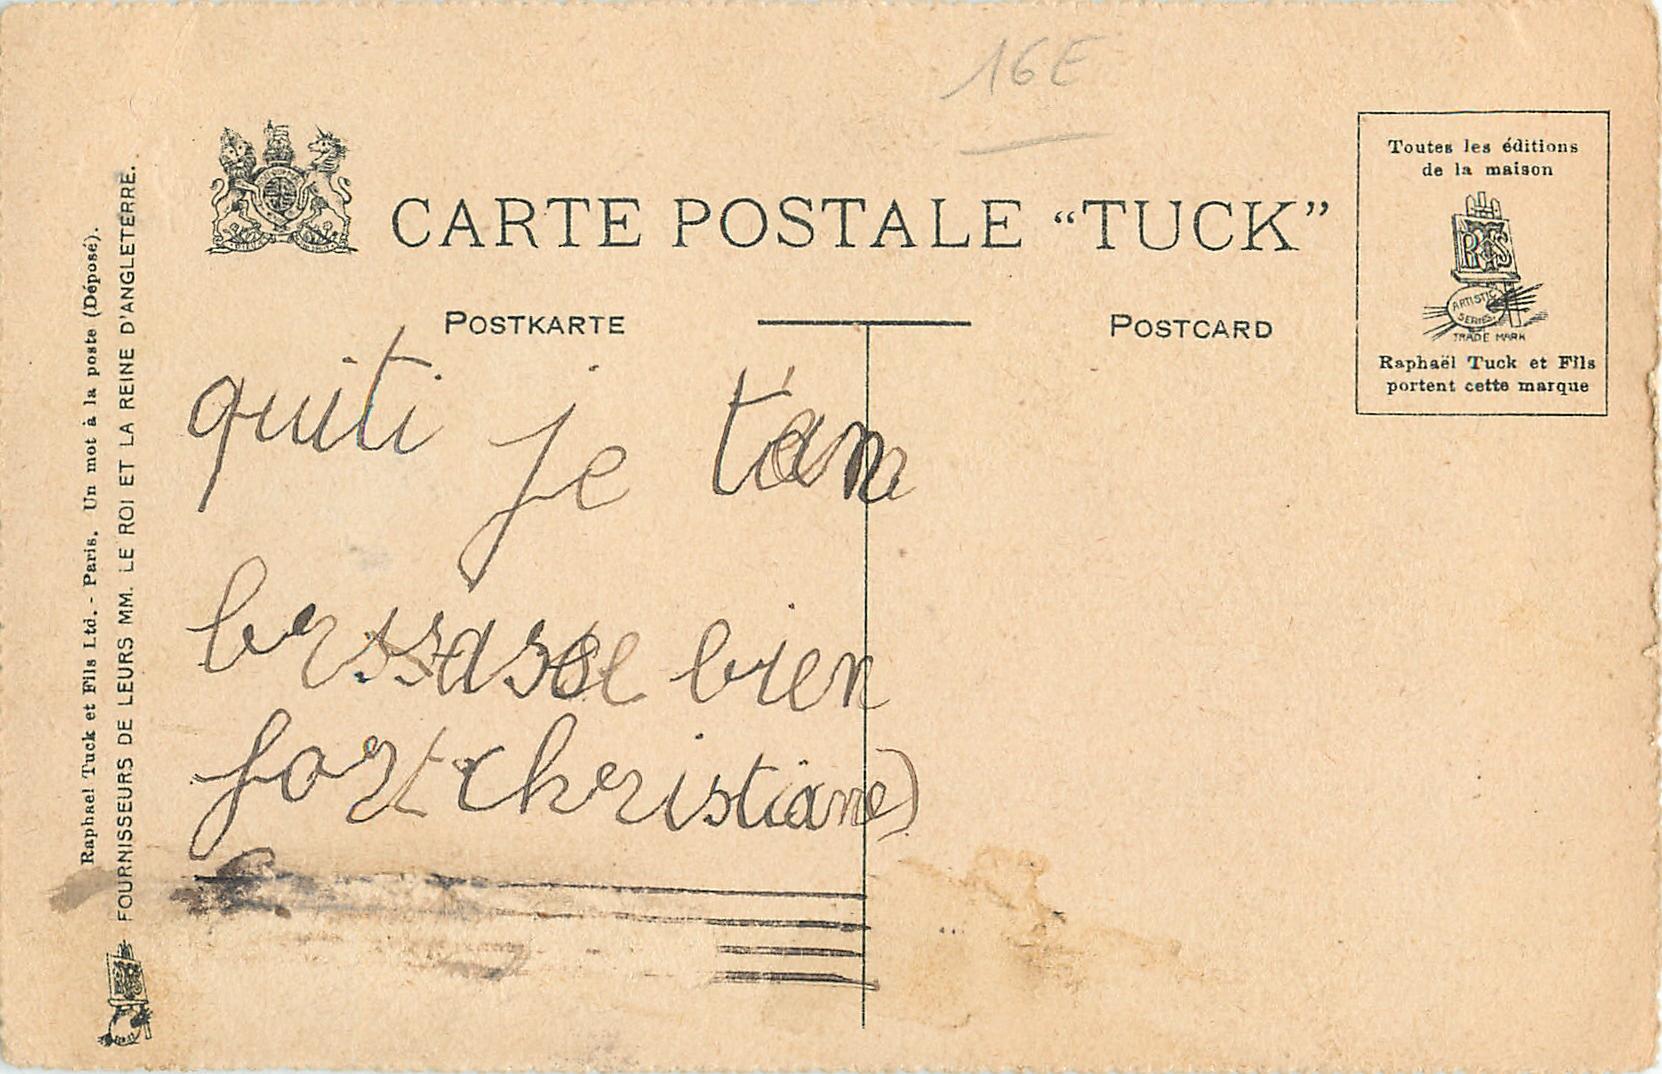 16E
CARTE POSTALE “TUCK”
POSTKARTE
POSTCARD
Toutes les éditions
de la maison
ARTISTIC
SERIES
TRADE MARK
Raphaël Tuck et Fils
portent cette marque
quiti je t'am
bien
fort christiane)
Raphael Tuck et Fils Ltd. - Paris. Un mot à la poste (Déposé).
FOURNISSEURS DE LEURS MM. LE ROI ET LA REINE D'ANGLETERRE.